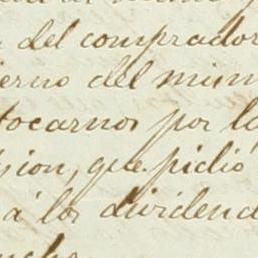 del comprador
ierno del mism
tocarnos por la
sion, que pidió
á los dividend